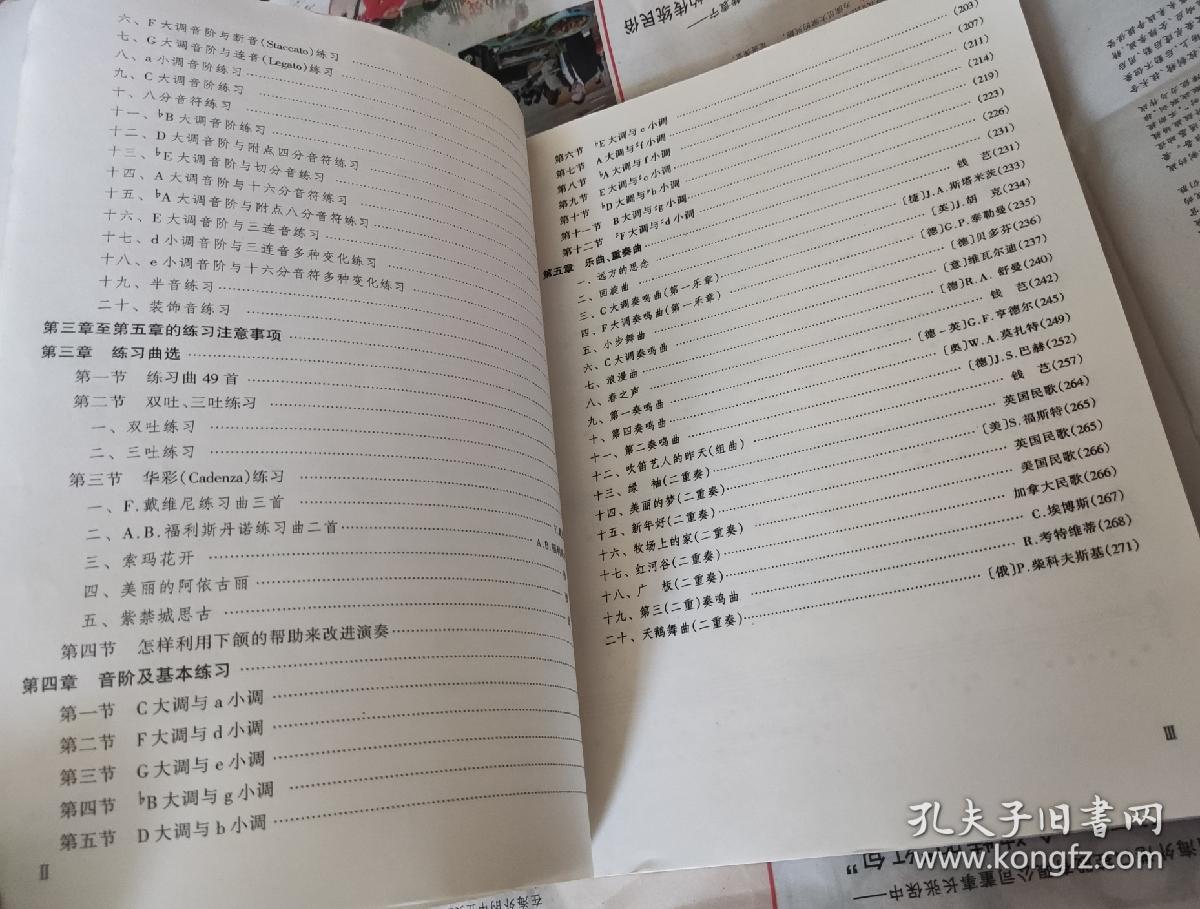 六、F大调音阶与断音(Staccato)练习
七、G大调音阶与连音(Legato)练习
八、a小调音阶练习
九、C大调音阶练习
十、八分音符练习
十一、♭B大调音阶练习
十二、D大调音阶与附点四分音符练习
十三、♭E大调音阶与切分音练习
十四、A大调音阶与十六分音符练习
十五、♭A大调音阶与附点八分音符练习
十六、E大调音阶与三连音练习
十七、d小调音阶与三连音多种变化练习
十八、e小调音阶与十六分音符多种变化练习
十九、半音练习
二十、装饰音练习
第三章至第五章的练习注意事项
第三章 练习曲选
第一节 练习曲49首
第二节 双吐、三吐练习
一、双吐练习
二、三吐练习
第三节 华彩(Cadenza)练习
一、F.戴维尼练习曲三首
二、A.B.福利斯丹诺练习曲二首
三、索玛花开
四、美丽的阿依古丽
五、紫禁城思古
第四节 怎样利用下颌的帮助来改进演奏
第四章 音阶及基本练习
第一节 C大调与a小调
第二节 F大调与d小调
第三节 G大调与e小调
第四节 ♭B大调与g小调
第五节 D大调与b小调
Ⅱ
第六节 ♭E大调与c小调 (203)
第七节 A大调与♯f小调 (207)
第八节 ♭A大调与f小调 (211)
第九节 E大调与♯c小调 (214)
第十节 ♭D大调与♭b小调 (219)
第十一节 B大调与♯g小调 (223)
第十二节 ♯F大调与♯d小调 (226)
第五章 乐曲、重奏曲 (231)
一、远方的思念 钱 芑(231)
二、回旋曲 [捷]J.A.斯塔米茨(233)
三、C大调奏鸣曲(第一乐章) [英]J.胡 克(234)
四、F大调奏鸣曲(第一乐章) [德]G.P.泰勒曼(235)
五、小步舞曲 [德]贝多芬(236)
六、C大调奏鸣曲 [意]维瓦尔迪(237)
七、浪漫曲 [德]R.A.舒曼(240)
八、春之声 钱 芑(242)
九、第一奏鸣曲 [德-英]G.F.亨德尔(245)
十、第四奏鸣曲 [奥]W.A.莫扎特(249)
十一、第二奏鸣曲 [德]J.S.巴赫(252)
十二、吹笛艺人的昨天(组曲) 钱 芑(257)
十三、绿 袖(二重奏) 英国民歌(264)
十四、美丽的梦(二重奏) [美]S.福斯特(265)
十五、新年好(二重奏) 英国民歌(265)
十六、牧场上的家(二重奏) 美国民歌(266)
十七、红河谷(二重奏) 加拿大民歌(266)
十八、广 板(二重奏) C.埃博斯(267)
十九、第三(二重)奏鸣曲 R.考特维蒂(268)
二十、天鹅舞曲(二重奏) [俄]P.柴科夫斯基(271)
Ⅲ
孔夫子旧书网
www.kongfz.com